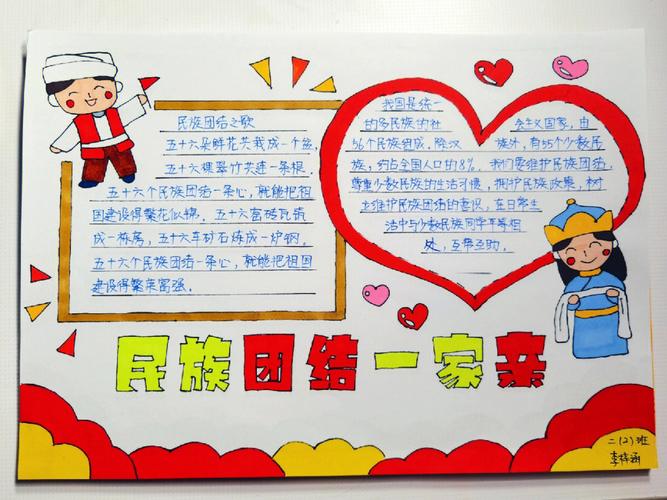 民族团结之歌
五十六朵鲜花共栽成一个盆,
五十六棵翠竹共连一条根.
五十六个民族团结一条心,就能把祖
国建设得繁花似锦.五十六窑砖瓦铸
成一栋房,五十六车矿石炼成一炉钢.
五十六个民族团结一条心,就能把祖国
建设得繁荣富强.
我国是统一
的多民族的社会主义国家,由
56个民族组成.除汉族外,有55个少数民
族,约占全国人口的8%.我们要维护民族团结,
尊重少数民族的生活习惯,拥护民族政策,树
立维护民族团结的意识,在日常生
活中与少数民族同学平等相
处,互帮互助.
民族团结一家亲
二(2)班
李梓涵